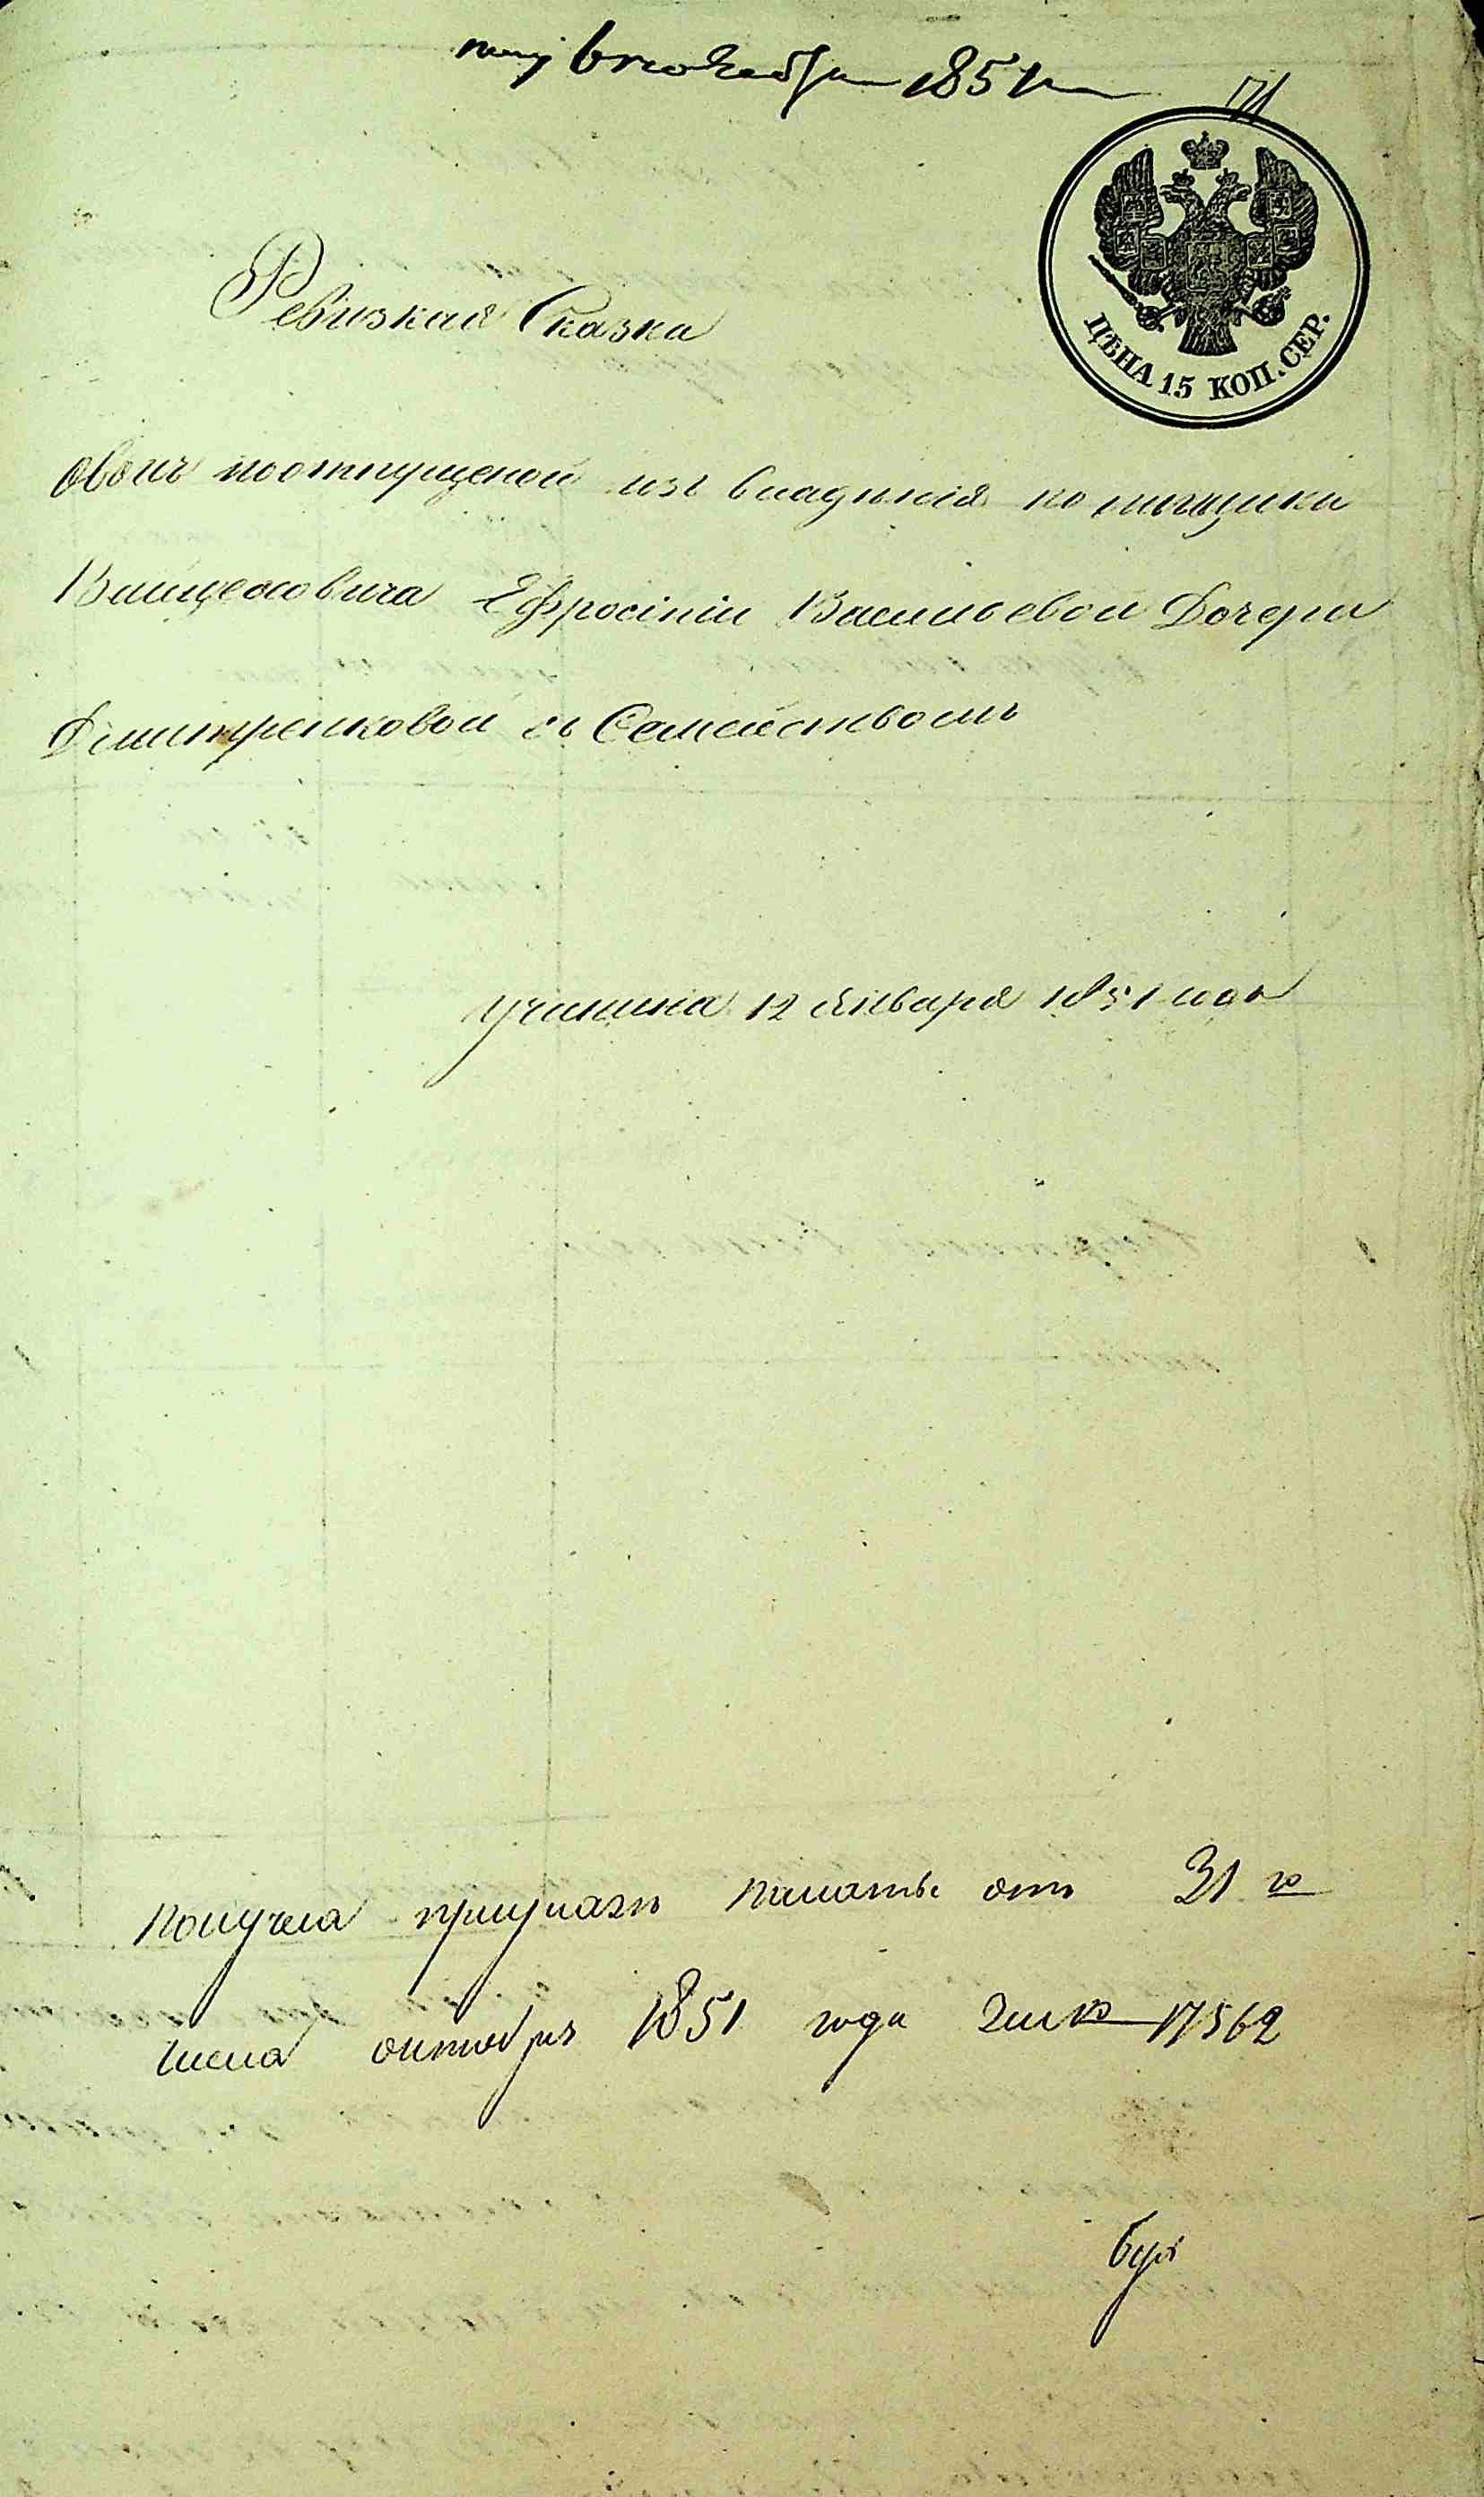 1851
71
ЦѢНА 15 КОП. СЕР.
Ревизкая Сказка
овольноотпущеной изъ владѣнія помѣщика
Ефросініи Васильевой Дочери
Дмитренковой съ Семействомъ
учинина 12 Января 1851 года
Получена при указѣ Палаты отъ 31 го
числа октября 1851 года за № 17562